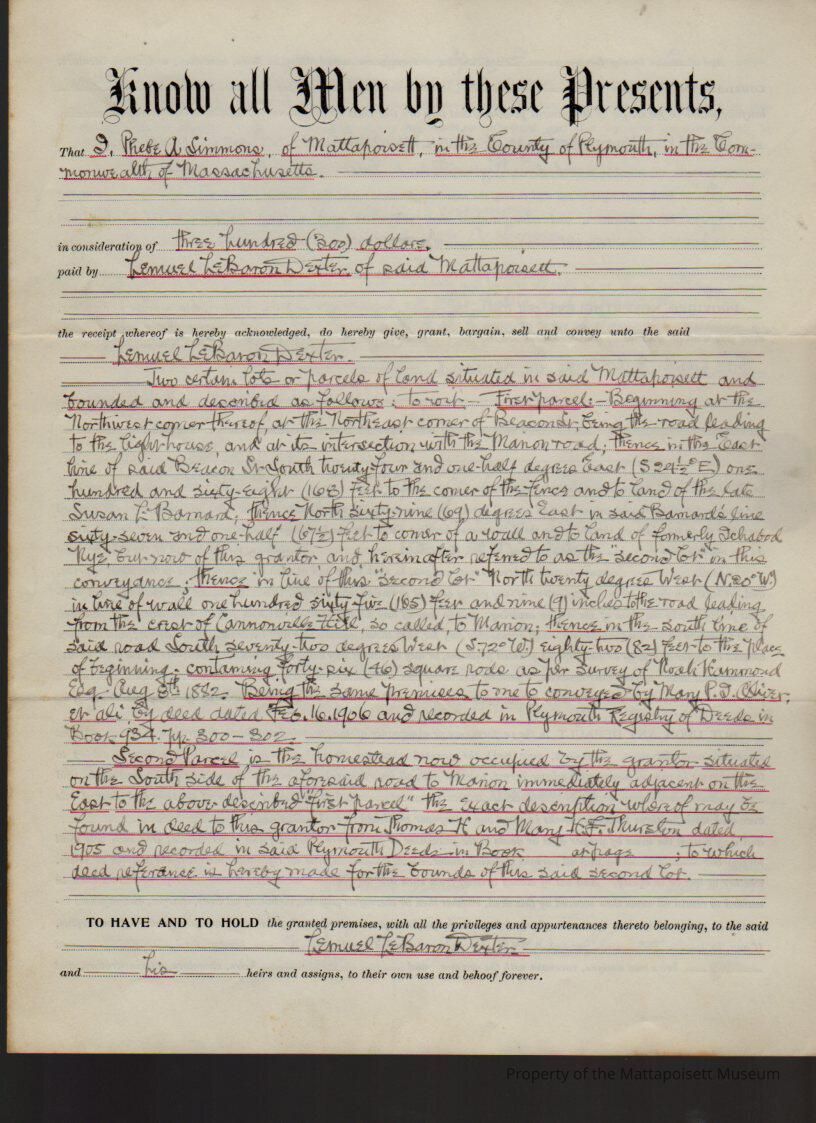 Know all Men by these Presents,
That I, Phebe A Simmons, of Mattapoisett, in the County of Plymouth, in the Com-
monwealth, of Massachusetts.
in consideration of three hundred (300) dollars.
paid by Lemuel LeBaron Dexter, of said Mattapoisett.
the receipt whereof is hereby acknowledged, do hereby give, grant, bargain, sell and convey unto the said
Lemuel LeBaron Dexter.
Two certain lots or parcels of land situated in said Mattapoisett and
bounded and described as follows; to wit:- First parcel:- Beginning at the
Northwest corner thereof, at the Northeast corner of Beacon St, being the road leading
to the lighthouse, and at its intersection with the Marion road; thence in the East
line of said Beacon St South twenty-four and one-half degrees East (S 24½° E) one
hundred and sixty-eight (168) feet to the corner of the fence and to land of the late
Susan L. Barnard; thence North sixty-nine (69) degrees East in said Barnard's line
sixty-seven and one-half (67½) feet to corner of a wall and to land of formerly Ichabod
Nye, but now of this grantor, and hereinafter referred to as the "second lot" in this
conveyance; thence in line of this "second lot" North twenty degrees West (N. 20° W)
in line of wall one hundred sixty-five (165) feet and nine (9) inches to the road leading
from the crest of Cannonville Hill, so called, to Marion; thence in the south line of
said road South seventy-two degrees West (S. 72° W.) eighty-two (82) feet to the place
of beginning. containing forty-six (46) square rods as per survey of Noah Hammond
Esq. Aug 8th 1882. Being the same premises to me conveyed by Mary P. I. Oliver,
et ali by deed dated Feb. 16. 1906 and recorded in Plymouth Registry of Deeds in
Book 934. pp. 300 - 302.
Second Parcel is the homestead now occupied by the grantor situated
on the South side of the aforesaid road to Marion immediately adjacent on the
East to the above described "first parcel" the exact description whereof may be
found in deed to this grantor from Thomas H and Mary Thurston dated,
1905 and recorded in said Plymouth Deeds in Book at page ; to which
deed reference is hereby made for the bounds of this said second lot.
TO HAVE AND TO HOLD the granted premises, with all the privileges and appurtenances thereto belonging, to the said
Lemuel LeBaron Dexter
and his heirs and assigns, to their own use and behoof forever.
Property of the Mattapoisett Museum